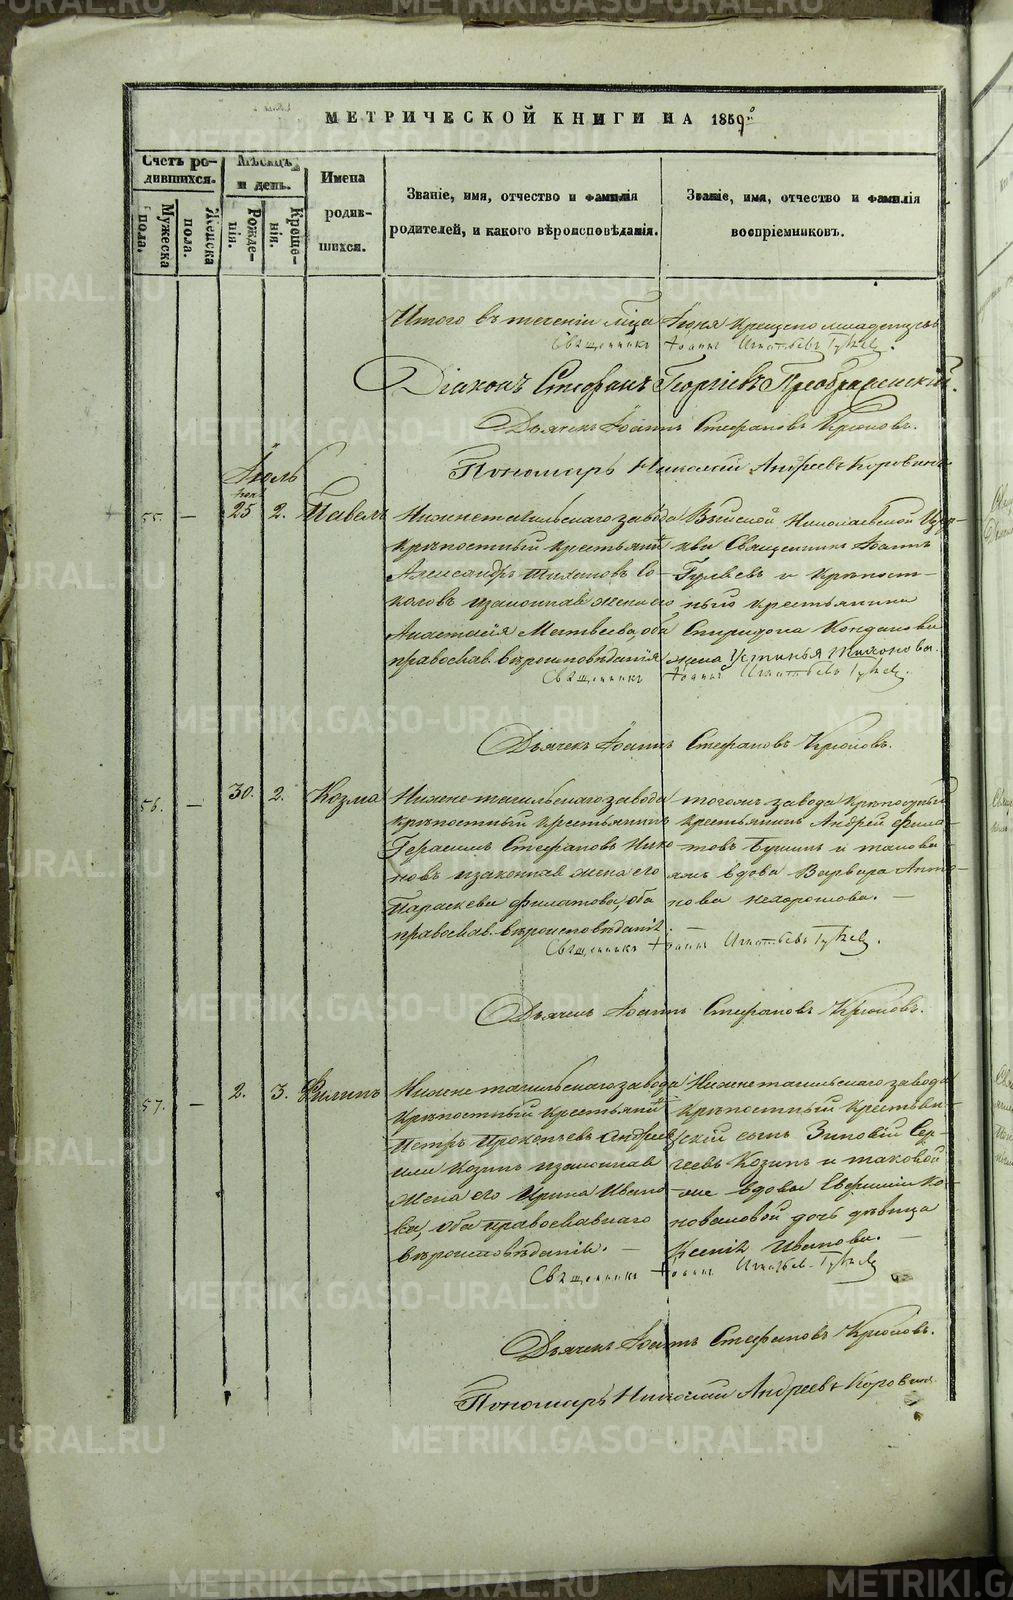 МЕТРИЧЕСКОЙ КНИГИ НА 1859
Счетъ родившихся.
Мужеска пола.
Женска пола.
Мѣсяцъ и день.
Рожденія.
Крещенія.
Имена родившихся.
Званіе, имя, отчество и фамилія родителей, и какого вѣроисповѣданія.
Званіе, имя, отчество и фамилія воспріемниковъ.
Итого въ теченіи мѣца Іюня крещено младенцевъ
Священникъ Іоаннъ Игнатьевъ Гуляев.
Діаконъ Стефанъ Георгіевъ Преображенскій.
Дьячекъ Іоаннъ Стефановъ Крюковъ.
Пономарь Николай Андреевъ Коровинъ
Іюль
55. — 25 2. Павелъ
Нижнетагильскаго завода
крѣпостный крестьянинъ
Александръ Тихановъ Соколовъ
и законная жена его
Анастасія Матвеева, оба
православ. вѣроисповѣданія
Выйской Николаевской Церкви
Священникъ Іоаннъ
Гуляевъ и крѣпостнаго
крестьянина
Спиридона Кондакова
жена Устинья Тихонова.
Священникъ Іоаннъ Игнатьевъ Гуляев.
Дьячекъ Іоаннъ Стефановъ Крюковъ.
56. — 30. 2. Козма
Нижнетагильскаго завода
крѣпостный крестьянинъ
Герасимъ Стефановъ
и законная жена его
Параскева Филатова, оба
православ. вѣроисповѣданія.
тогожъ завода крѣпостный
крестьянинъ Андрей Филатовъ
и таковаяжъ вдова Варвара Антонова
Нехорошова. —
Священникъ Іоаннъ Игнатьевъ Гуляев.
Дьячекъ Іоаннъ Стефановъ Крюковъ.
57. — 2. 3. Филипъ
Нижнетагильскаго завода
крѣпостный крестьянинъ
Петръ Прокопьевъ
или Козинъ и законная
жена его Ирина Иванова,
оба православнаго
вѣроисповѣданія. —
Нижнетагильскаго завода
крѣпостный крестьянскій
сынъ Зиновій Сергеевъ
Козинъ и таковой
же вдовы Евфиміи Коноваловой
дочь дѣвица
Ксенія Иванова. —
Священникъ Іоаннъ Игнатьев Гуляев
Дьячекъ Іоаннъ Стефановъ Крюковъ.
Пономарь Николай Андреевъ Коровинъ
METRIKI.GASO-URAL.RU